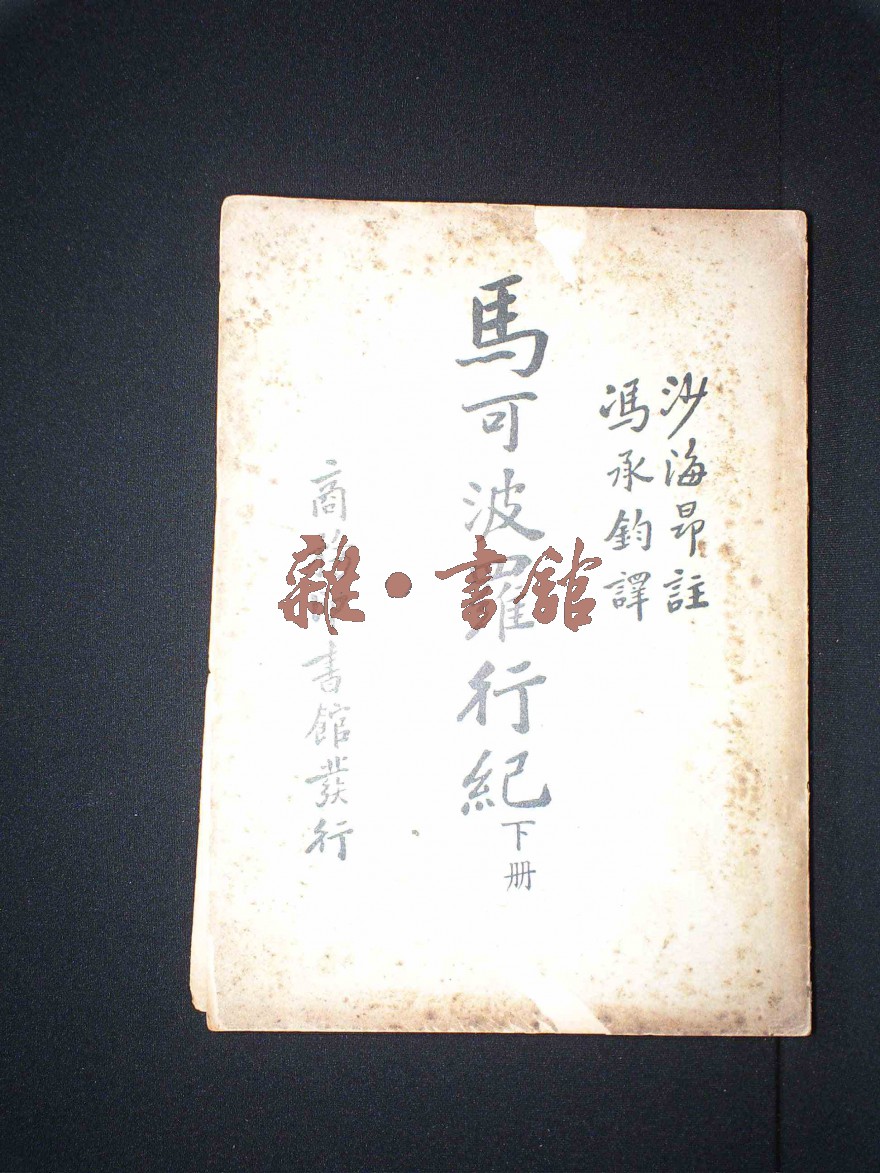 沙海昂註
馮承鈞譯
馬可波羅行紀
下册
商務印書館發行
雜·書館